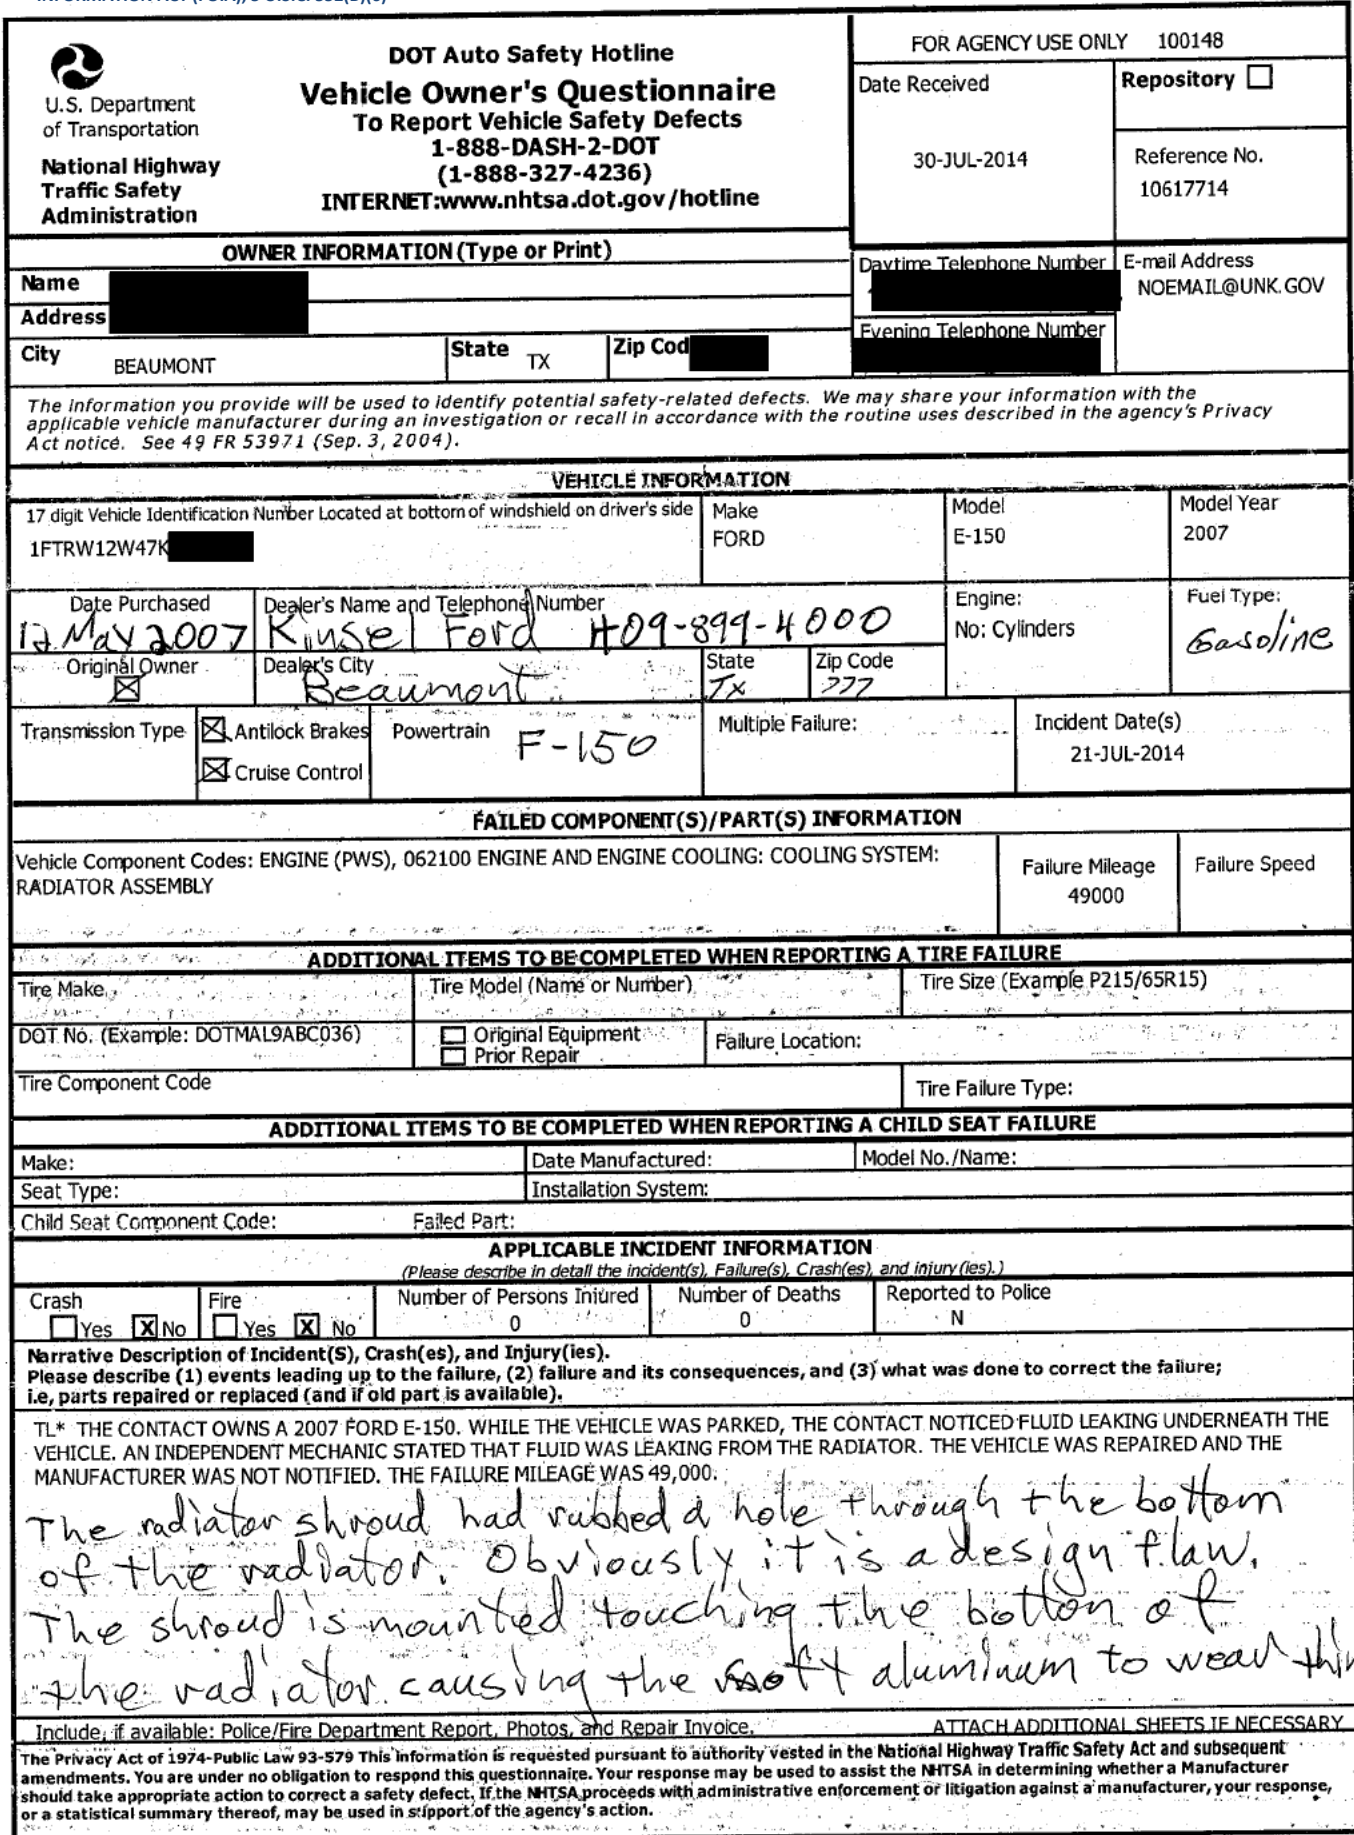 DOT Auto Safety Hotline
Vehicle Owner's Questionnaire
To Report Vehicle Safety Defects
1-888-DASH-2-DOT
(1-888-327-4236)
INTERNET:www.nhtsa.dot.gov/hotline
U.S. Department
of Transportation
National Highway
Traffic Safety
Administration
FOR AGENCY USE ONLY 100148
Date Received
30-JUL-2014
Repository
Reference No.
10617714
OWNER INFORMATION (Type or Print)
Name
Address
City BEAUMONT State TX Zip Cod
Daytime Telephone Number
Evening Telephone Number
E-mail Address
NOEMAIL@UNK.GOV
The information you provide will be used to identify potential safety-related defects. We may share your information with the
applicable vehicle manufacturer during an investigation or recall in accordance with the routine uses described in the agency's Privacy
Act notice. See 49 FR 53971 (Sep. 3, 2004).
VEHICLE INFORMATION
17 digit Vehicle Identification Number Located at bottom of windshield on driver's side
1FTRW12W47K
Make
FORD
Model
E-150
Model Year
2007
Date Purchased
12 May 2007
Dealer's Name and Telephone Number
Kinsel Ford 409-899-4000
Engine:
No: Cylinders
Fuel Type:
Gasoline
Original Owner
Dealer's City
Beaumont
State
TX
Zip Code
777
Transmission Type
Antilock Brakes
Cruise Control
Powertrain F-150
Multiple Failure:
Incident Date(s)
21-JUL-2014
FAILED COMPONENT(S)/PART(S) INFORMATION
Vehicle Component Codes: ENGINE (PWS), 062100 ENGINE AND ENGINE COOLING: COOLING SYSTEM:
RADIATOR ASSEMBLY
Failure Mileage
49000
Failure Speed
ADDITIONAL ITEMS TO BE COMPLETED WHEN REPORTING A TIRE FAILURE
Tire Make
Tire Model (Name or Number)
Tire Size (Example P215/65R15)
DOT No. (Example: DOTMAL9ABC036)
Original Equipment
Prior Repair
Failure Location:
Tire Component Code
Tire Failure Type:
ADDITIONAL ITEMS TO BE COMPLETED WHEN REPORTING A CHILD SEAT FAILURE
Make: Date Manufactured: Model No./Name:
Seat Type: Installation System:
Child Seat Component Code: Failed Part:
APPLICABLE INCIDENT INFORMATION
(Please describe in detail the incident(s), Failure(s), Crash(es), and injury(ies).)
Crash
Yes X No
Fire
Yes X No
Number of Persons Injured
0
Number of Deaths
0
Reported to Police
N
Narrative Description of Incident(S), Crash(es), and Injury(ies).
Please describe (1) events leading up to the failure, (2) failure and its consequences, and (3) what was done to correct the failure;
i.e, parts repaired or replaced (and if old part is available).
TL* THE CONTACT OWNS A 2007 FORD E-150. WHILE THE VEHICLE WAS PARKED, THE CONTACT NOTICED FLUID LEAKING UNDERNEATH THE
VEHICLE. AN INDEPENDENT MECHANIC STATED THAT FLUID WAS LEAKING FROM THE RADIATOR. THE VEHICLE WAS REPAIRED AND THE
MANUFACTURER WAS NOT NOTIFIED. THE FAILURE MILEAGE WAS 49,000.
The radiator shroud had rubbed a hole through the bottom
of the radiator. Obviously it is a design flaw.
The shroud is mounted touching the botton of
the radiator causing the soft aluminum to wear thin
Include, if available: Police/Fire Department Report, Photos, and Repair Invoice.
ATTACH ADDITIONAL SHEETS IF NECESSARY
The Privacy Act of 1974-Public Law 93-579 This information is requested pursuant to authority vested in the National Highway Traffic Safety Act and subsequent
amendments. You are under no obligation to respond this questionnaire. Your response may be used to assist the NHTSA in determining whether a Manufacturer
should take appropriate action to correct a safety defect. If the NHTSA proceeds with administrative enforcement or litigation against a manufacturer, your response,
or a statistical summary thereof, may be used in support of the agency's action.